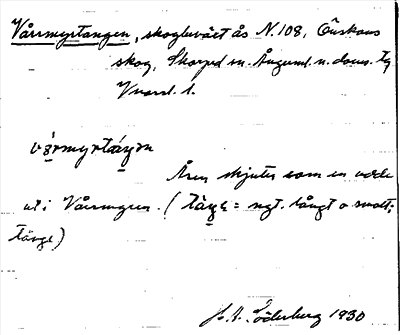 Vårmyrtangen, skogbeväxt ås N. 108, Önskans
skog, Skorped sn. Ångerml. n. doms. tg
Vnorrl. l.
vårmyrtáŋən
Åsen skjuter som en udde
ut i Vårmyren. (taŋe = ngt. långt o smalt;
tånge)
J. A. Söderberg 1930